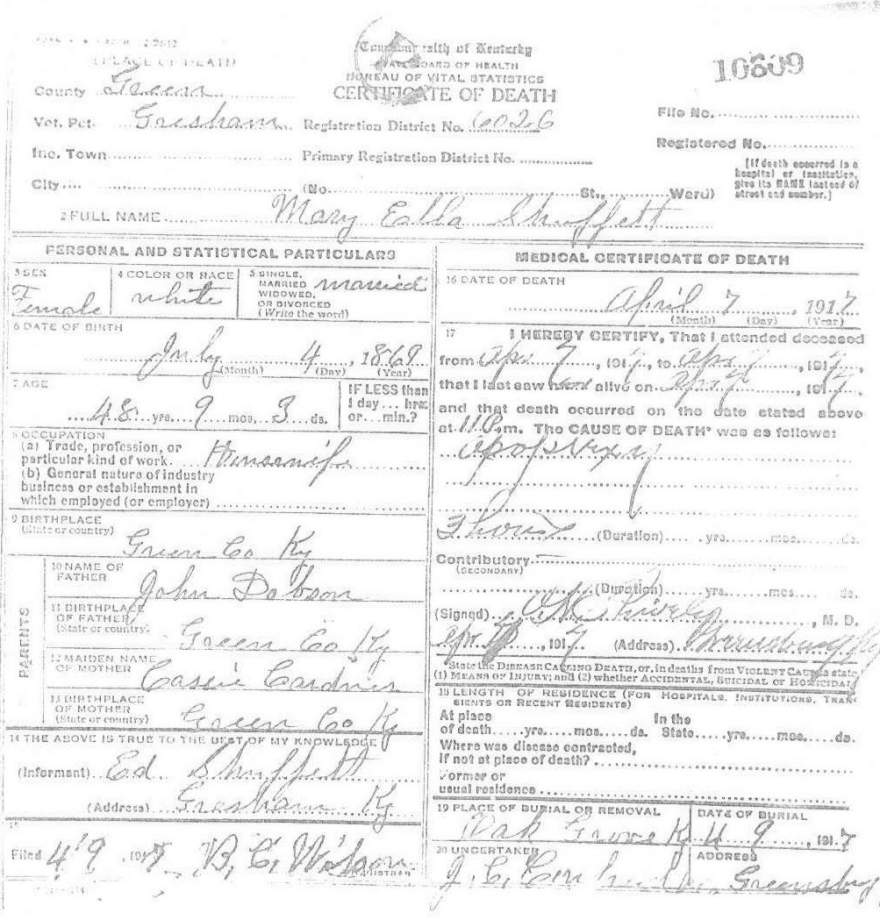 PLACE OF DEATH
Commonwealth of Kentucky
STATE BOARD OF HEALTH
BUREAU OF VITAL STATISTICS
CERTIFICATE OF DEATH
10809
County Green
Vot. Pct. Gresham Registration District No. 6026
File No.
Inc. Town Primary Registration District No.
Registered No.
City (No. St., Ward)
[If death occurred in a hospital or institution, give its NAME instead of street and number.]
2 FULL NAME Mary Ella Shuffett
PERSONAL AND STATISTICAL PARTICULARS
3 SEX Female
4 COLOR OR RACE white
5 SINGLE, MARRIED, WIDOWED, OR DIVORCED (Write the word) married
6 DATE OF BIRTH
July 4, 1869
(Month) (Day) (Year)
7 AGE
48 yrs. 9 mos. 3 ds.
IF LESS than 1 day ... hrs. or ... min.?
8 OCCUPATION
(a) Trade, profession, or
particular kind of work. Housewife
(b) General nature of industry
business or establishment in
which employed (or employer)
9 BIRTHPLACE
(State or country)
Green Co Ky
PARENTS
10 NAME OF FATHER
John Dobson
11 BIRTHPLACE OF FATHER
(State or country)
Green Co Ky
12 MAIDEN NAME OF MOTHER
Cassie Cardner
13 BIRTHPLACE OF MOTHER
(State or country)
Green Co Ky
14 THE ABOVE IS TRUE TO THE BEST OF MY KNOWLEDGE
(Informant) Ed. Shuffett
(Address) Gresham Ky
15
Filed 4 9 1917 B. C. Wilson
REGISTRAR
MEDICAL CERTIFICATE OF DEATH
16 DATE OF DEATH
April 7, 1917
(Month) (Day) (Year)
17 I HEREBY CERTIFY, That I attended deceased
from Apr 7, 1917, to Apr 7, 1917,
that I last saw her alive on Apr 7, 1917,
and that death occurred on the date stated above
at 11 P.m. The CAUSE OF DEATH* was as follows:
Apoplexy
3 hours (Duration) yrs. mos. ds.
Contributory
(SECONDARY)
(Duration) yrs. mos. ds.
(Signed) Shively, M. D.
Apr, 1917 (Address) Ky
*State the DISEASE CAUSING DEATH, or, in deaths from VIOLENT CAUSES state
(1) MEANS OF INJURY; and (2) whether ACCIDENTAL, SUICIDAL or HOMICIDAL
18 LENGTH OF RESIDENCE (FOR HOSPITALS, INSTITUTIONS, TRANSIENTS OR RECENT RESIDENTS)
At place In the
of death yrs. mos. ds. State yrs. mos. ds.
Where was disease contracted,
if not at place of death?
Former or
usual residence
19 PLACE OF BURIAL OR REMOVAL
Oak Grove K
DATE OF BURIAL
4 9, 1917
20 UNDERTAKER
J. C.
ADDRESS
Greensburg